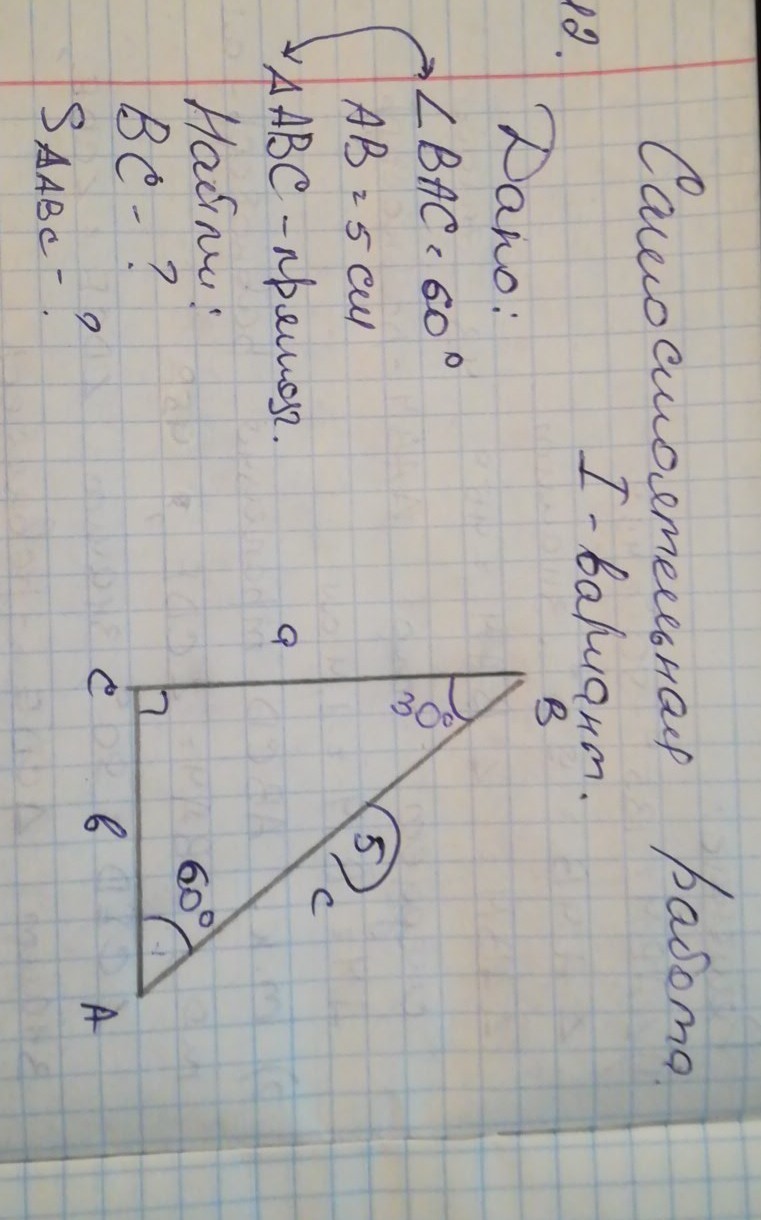 12.
Самостоятельная работа.
I - вариант.
Дано:
∠BAC = 60°
AB = 5 см
△ABC - прямоуг.
Найти:
BC - ?
S△ABC - ?
B
30°
a
5
c
60°
C
b
A